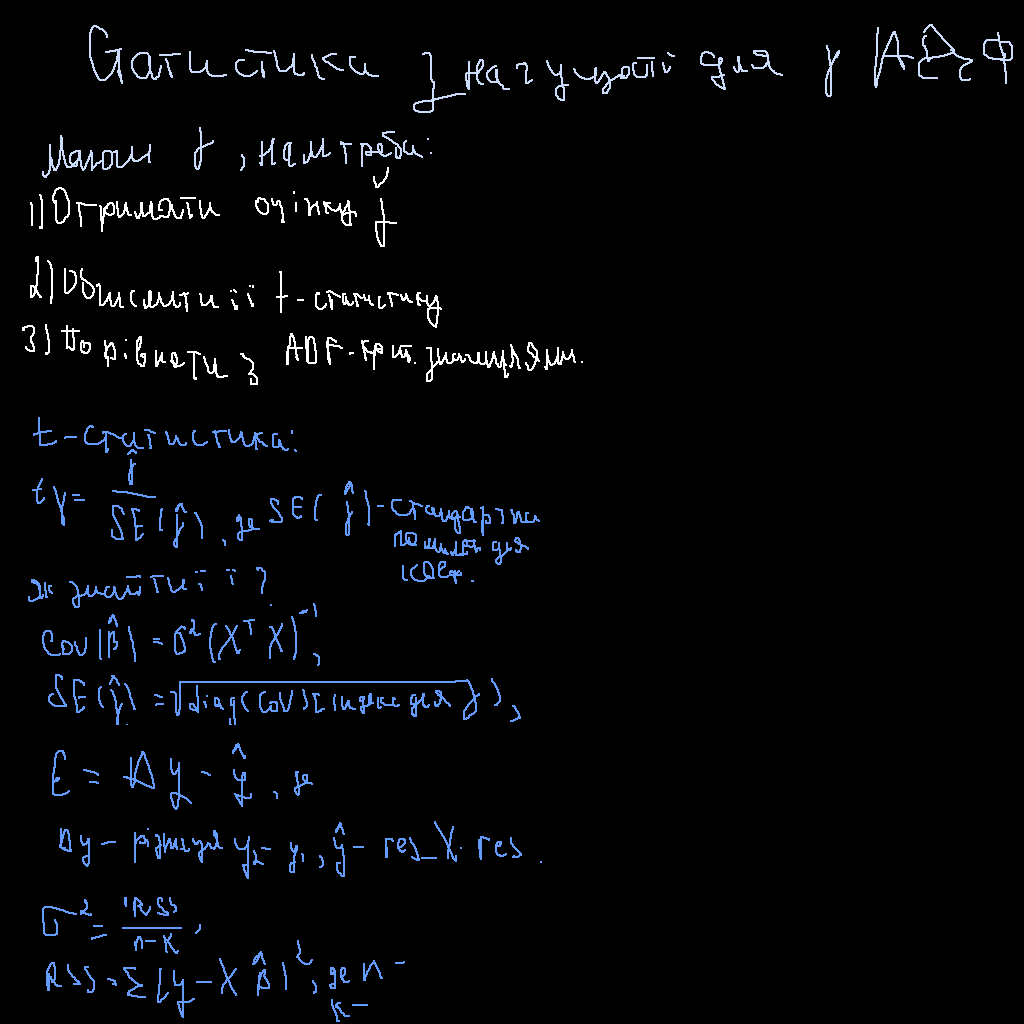 Статистика значущості для γ АДФ
Маючи γ, нам треба:
1) Отримати оцінку γ̂
2) Обчислити її t-статистику
3) Порівняти з ADF-крит. значеннями.
t-статистика:
tγ = γ̂ / SE(γ̂), де SE(γ̂) - стандартна
помилка для
коеф.
Як знайти її?
Cov(β̂) = σ²(XᵀX)⁻¹,
SE(γ̂) = √diag(Cov)[індекс для γ],
ε = Δy - ŷ, де
Δy - різниця y₂ - y₁, ŷ - res_X · res.
σ² = RSS / n-k,
RSS = Σ(y - Xβ̂)², де n -
k -